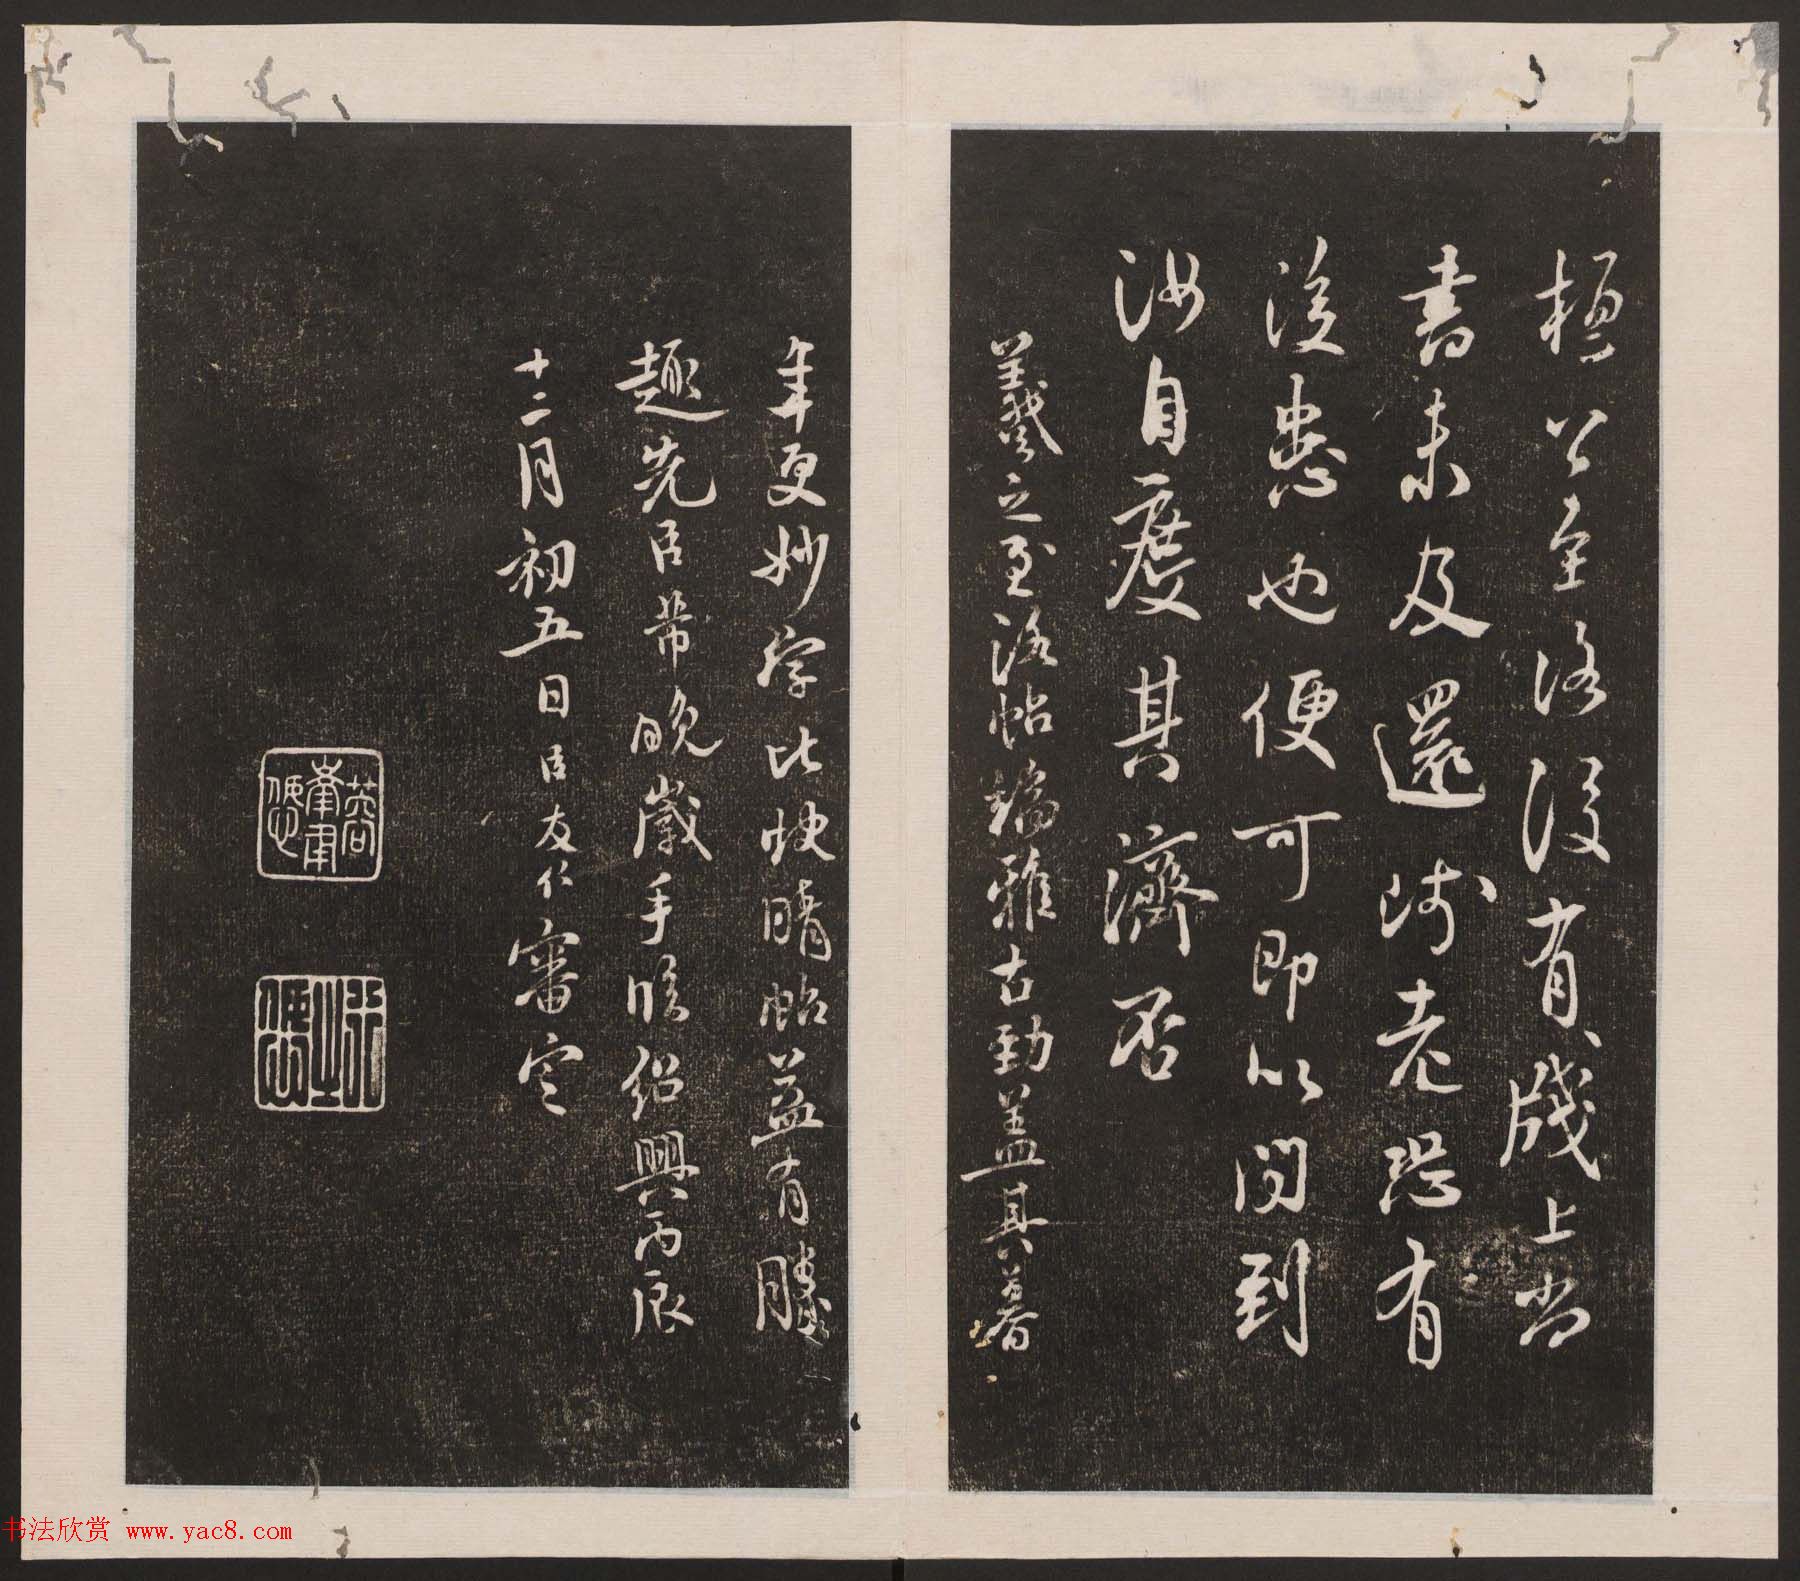 桓公至洛後有牋上尚
書未及還時老恐有
後患也便可即以問到
汝自度其濟否
羲之至洛帖端雅古勁蓋其暮
年更妙字比快晴帖益有勝
趣先臣芾晚歲手臨紹興丙辰
十二月初五日臣友仁審定
书法欣赏 www.yac8.com